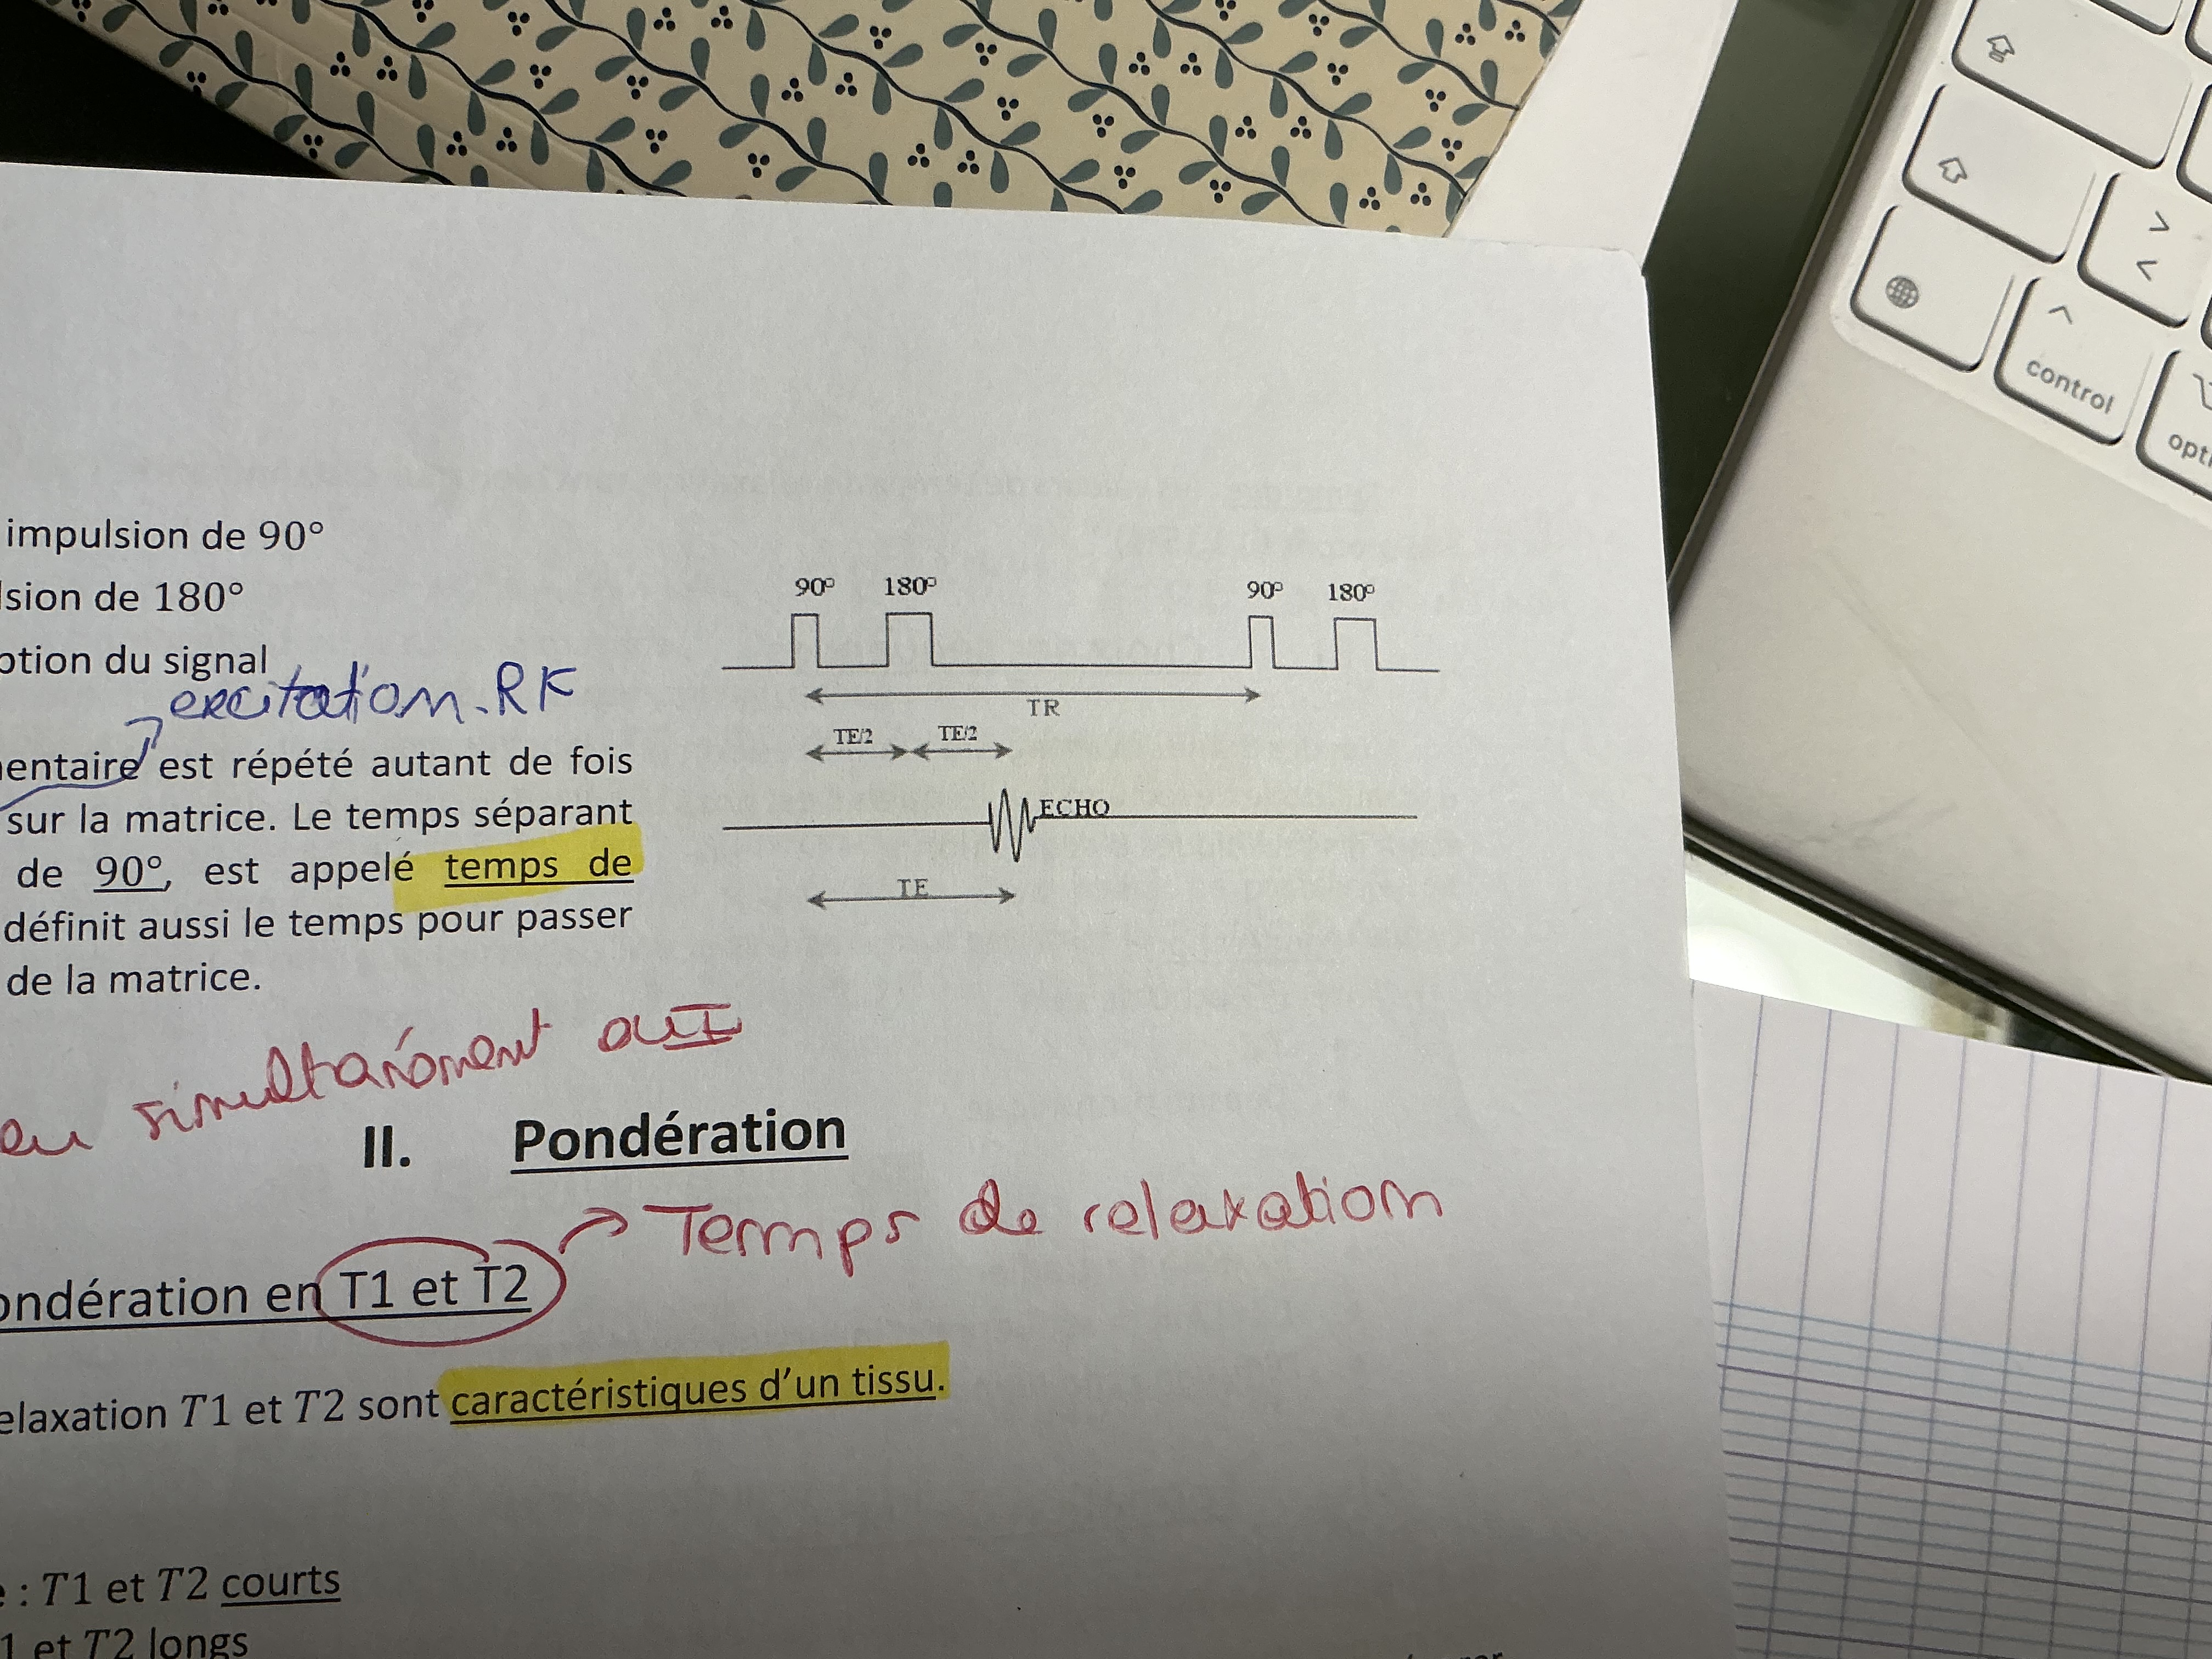 impulsion de 90°
lsion de 180°
ption du signal
excitation.RF
mentaire est répété autant de fois
sur la matrice. Le temps séparant
de 90°, est appelé temps de
définit aussi le temps pour passer
de la matrice.
90º 180º 90º 180º
TR
TE/2 TE/2
ECHO
TE
simultanément ou
II. Pondération
Temps de relaxation
ondération en T1 et T2
elaxation T1 et T2 sont caractéristiques d'un tissu.
: T1 et T2 courts
1 et T2 longs
>
<
control
opti